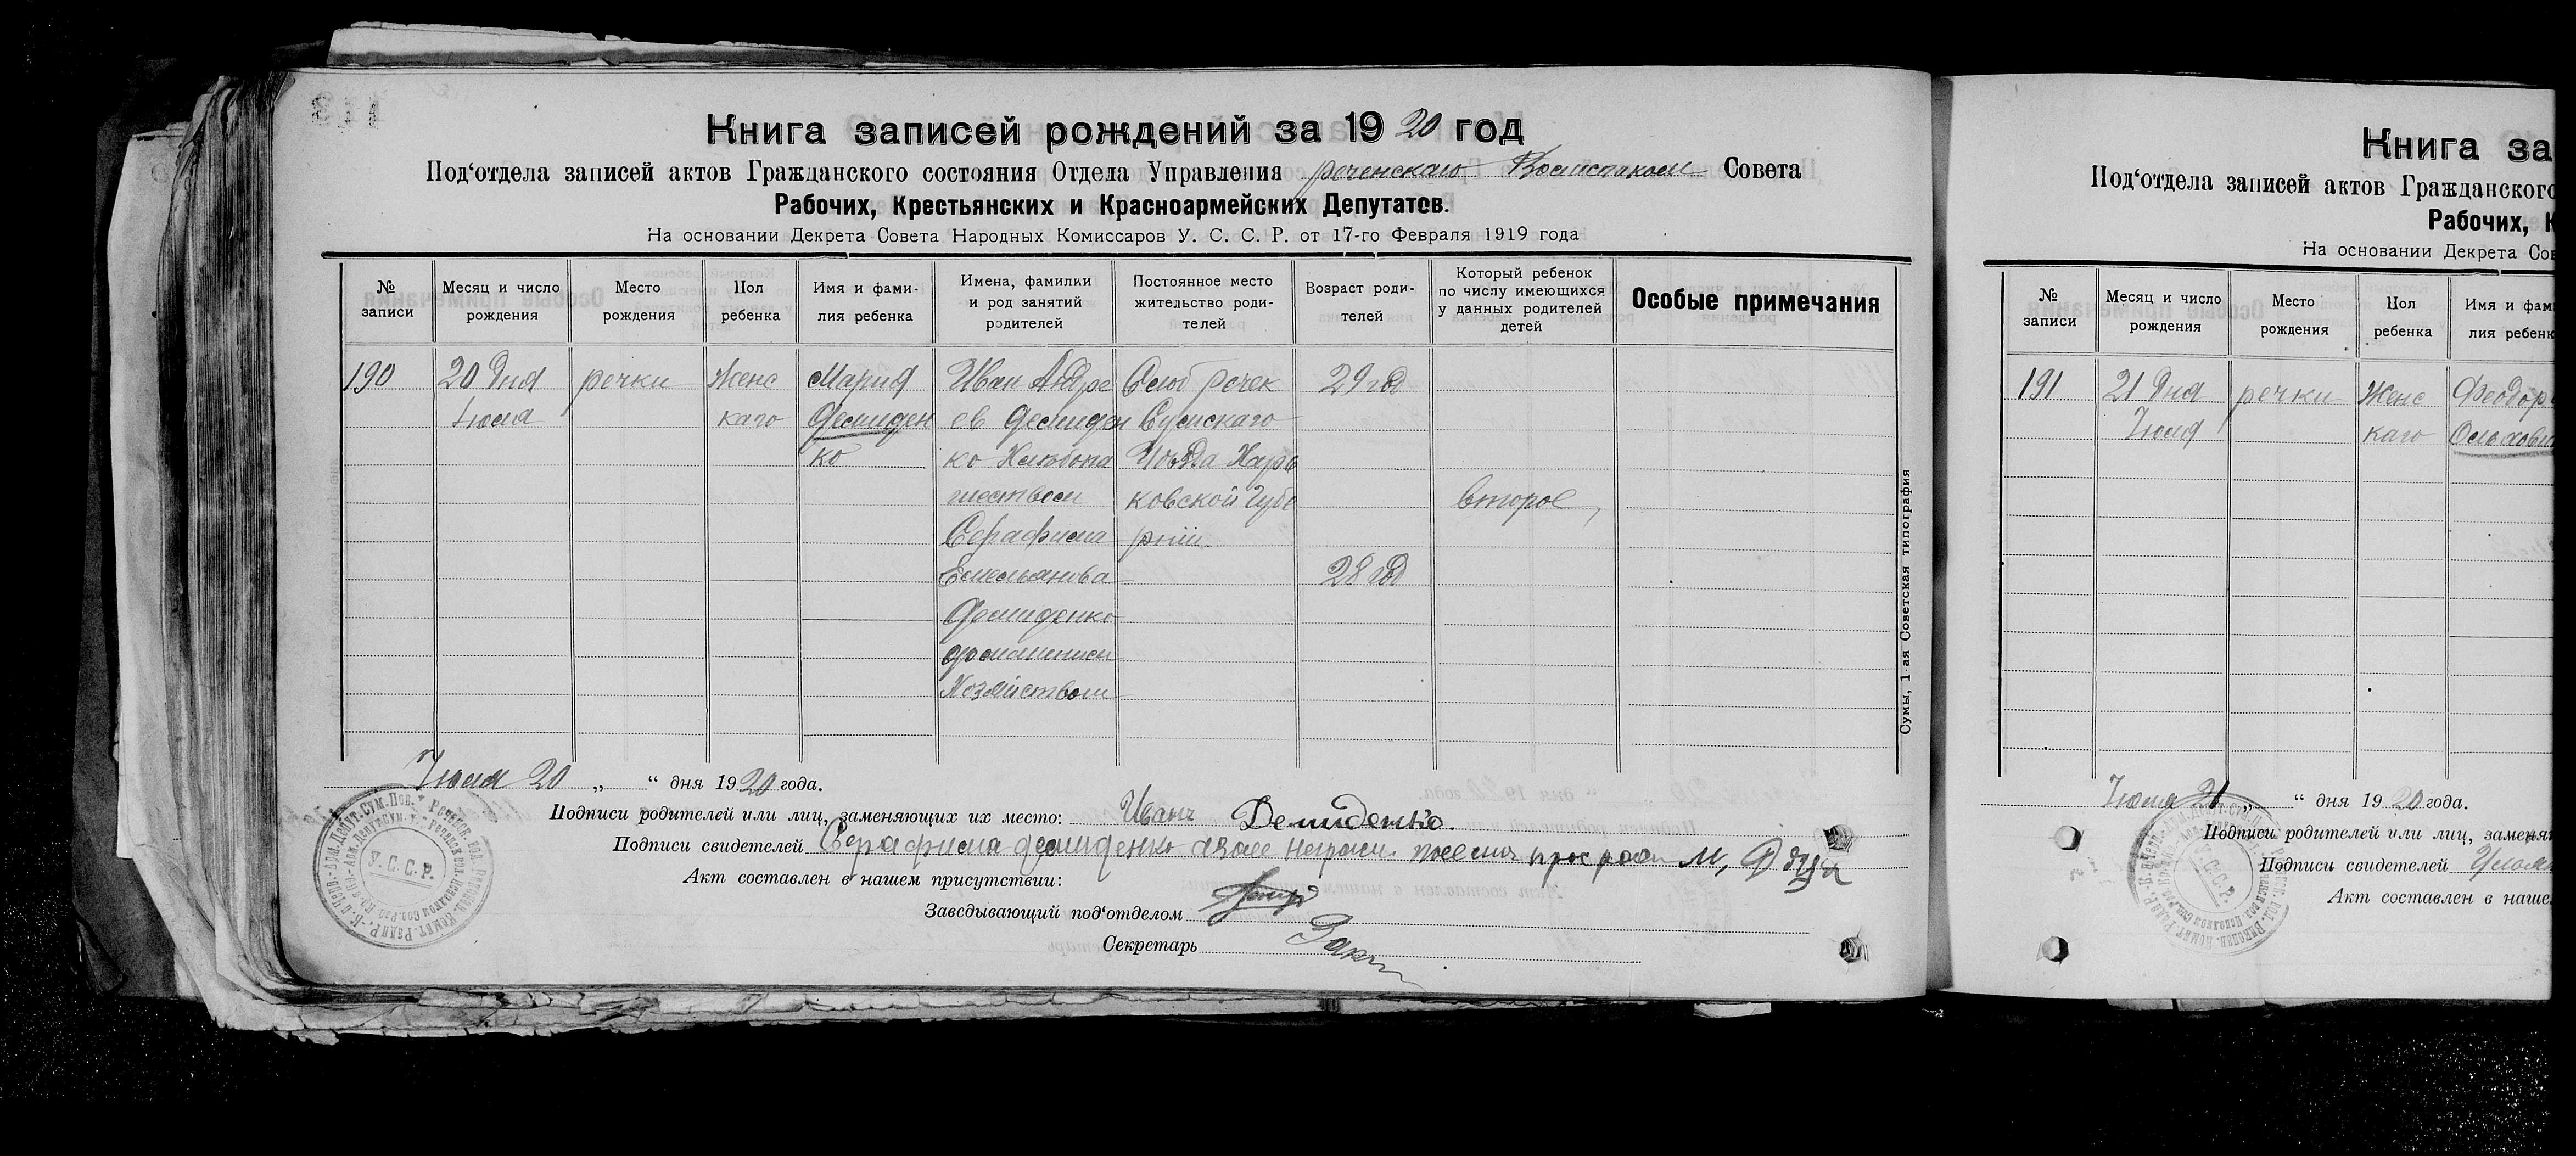 Книга записей рождений за 1920 год
Под‘отдела записей актов Гражданского состояния Отдела Управления реченскаго Волисполком Совета
Рабочих, Крестьянских и Красноармейских Депутатов.
На основании Декрета Совета Народных Комиссаров У. С. С. Р. от 17-го Февраля 1919 года
№ записи
Месяц и число рождения
Место рождения
Пол ребенка
Имя и фами-
лия ребенка
Имена, фамилки
и род занятий
родителей
Постоянное место
жительство роди-
телей
Возраст роди-
телей
Который ребенок
по числу имеющихся
у данных родителей
детей
Особые примечания
190
20 дня
Июля
речки
Женс
каго
Мария
Демиден
ко
Иван Андре
ев Демиден
ко Хлебопа
шеством
Серафима
Емельянова
Демиденко
домашнем
Хозяйством
Слоб речек
Сумскаго
Уезда Харь
ковской Губе
рнии
29 год
28 год
второе
Июля 20 „ “ дня 1920 года.
Подписи родителей или лиц, заменяющих их место: Иванъ Демиденко.
Подписи свидетелей Серафима Демиденко
Акт составлен в нашем присутствии:
Заведывающий под‘отделом
Секретарь
У.С.С.Р.
Сумы, 1-ая Советская типография
Книга за
Под‘отдела записей актов Гражданского
Рабочих, К
На основании Декрета Сов
№ записи
Месяц и число рождения
Место рождения
Пол ребенка
Имя и фам
лия ребенк
191
21 дня
Июля
речки
Женс
каго
Феодор
Июля 21 „ “ дня 1920 года.
Подписи родителей или лиц, заменя
Подписи свидетелей
Акт составлен в наше
У.С.С.Р.